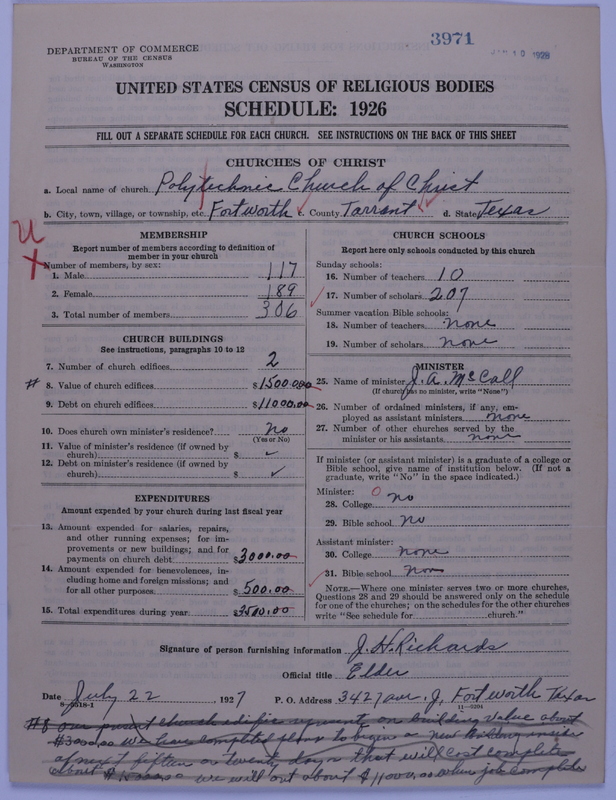 3971
JAN 10 1928
DEPARTMENT OF COMMERCE
BUREAU OF THE CENSUS
WASHINGTON
UNITED STATES CENSUS OF RELIGIOUS BODIES
SCHEDULE: 1926
FILL OUT A SEPARATE SCHEDULE FOR EACH CHURCH. SEE INSTRUCTIONS ON THE BACK OF THIS SHEET
CHURCHES OF CHRIST
a. Local name of church Polytechnic Church of Christ
b. City, town, village, or township, etc. Fort Worth c. County Tarrant d. State Texas
MEMBERSHIP
Report number of members according to definition of
member in your church
Number of members, by sex:
1. Male 117
2. Female 189
3. Total number of members 306
CHURCH BUILDINGS
See instructions, paragraphs 10 to 12
7. Number of church edifices 2
# 8. Value of church edifices $1500.00
9. Debt on church edifices $11000.00
10. Does church own minister's residence? No
(Yes or No)
11. Value of minister's residence (if owned by
church) $ ✓
12. Debt on minister's residence (if owned by
church) $ ✓
EXPENDITURES
Amount expended by your church during last fiscal year
13. Amount expended for salaries, repairs,
and other running expenses; for im-
provements or new buildings; and for
payments on church debt $3000.00
14. Amount expended for benevolences, in-
cluding home and foreign missions; and
for all other purposes $500.00
15. Total expenditures during year $3500.00
CHURCH SCHOOLS
Report here only schools conducted by this church
Sunday schools:
16. Number of teachers 10
17. Number of scholars 207
Summer vacation Bible schools:
18. Number of teachers none
19. Number of scholars none
MINISTER
25. Name of minister J. A. McCall
(If church has no minister, write "None")
26. Number of ordained ministers, if any, em-
ployed as assistant ministers none
27. Number of other churches served by the
minister or his assistants none
If minister (or assistant minister) is a graduate of a college or
Bible school, give name of institution below. (If not a
graduate, write "No" in the space indicated.)
Minister:
28. College no
29. Bible school no
Assistant minister:
30. College none
31. Bible school non
NOTE.—Where one minister serves two or more churches,
Questions 28 and 29 should be answered only on the schedule
for one of the churches; on the schedules for the other churches
write "See schedule for church."
Signature of person furnishing information J. H. Richards
Official title Elder
Date July 22 1927 P. O. Address 3427 ave. J, Fort Worth Texas
8-5518-1 11-9204
#8 our church edifice on building value about
$3000.00 we have completed plans to begin a new building inside
of next fifteen or twenty days that will cost complete
about we will out about $11000.00 when job complete